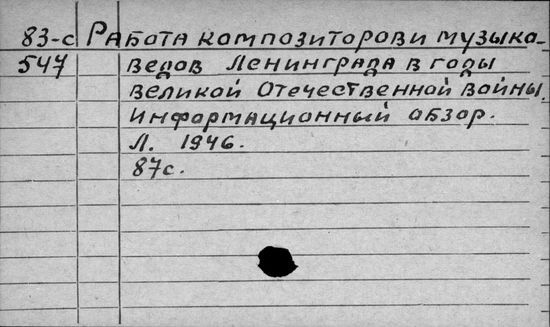 83-с Работа композиторов и музыка-
547 ведов Ленинграда в годы
Великой Отечественной войны.
Информационный обзор.
Л. 1946.
87с.